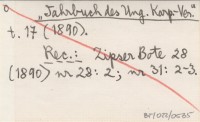 "Jahrbuch des Ung. Karp. Ver."
t. 17 (1890).
Rec.: Zipser Bote 28
(1890) nr 28: 2; nr 31: 2-3.